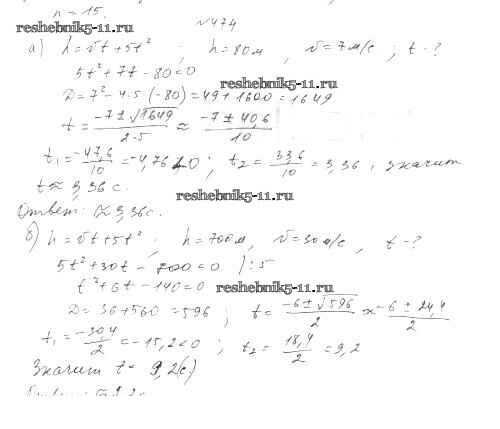 n = 15.
№474
reshebnik5-11.ru
а) h = vt + 5t² ; h = 80 м, v = 7 м/с ; t - ?
5t² + 7t - 80 = 0
reshebnik5-11.ru
D = 7² - 4·5·(-80) = 49 + 1600 = 1649
t = (-7 ± √1649)/(2·5) ≈ (-7 ± 40,6)/10
t₁ = -47,6/10 = -4,76 < 0 ; t₂ = 33,6/10 = 3,36 , значит
t ≈ 3,36 с.
reshebnik5-11.ru
Ответ: ≈ 3,36 с.
б) h = vt + 5t² ; h = 700 м, v = 30 м/с, t - ?
5t² + 30t - 700 = 0 | : 5
t² + 6t - 140 = 0
reshebnik5-11.ru
D = 36 + 560 = 596 ; t = (-6 ± √596)/2 ≈ (-6 ± 24,4)/2
t₁ = -30,4/2 = -15,2 < 0 ; t₂ = 18,4/2 = 9,2
Значит t = 9,2 (с)